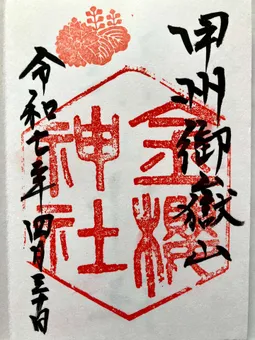 甲州御嶽山
金櫻
神社
令和七年四月三十日